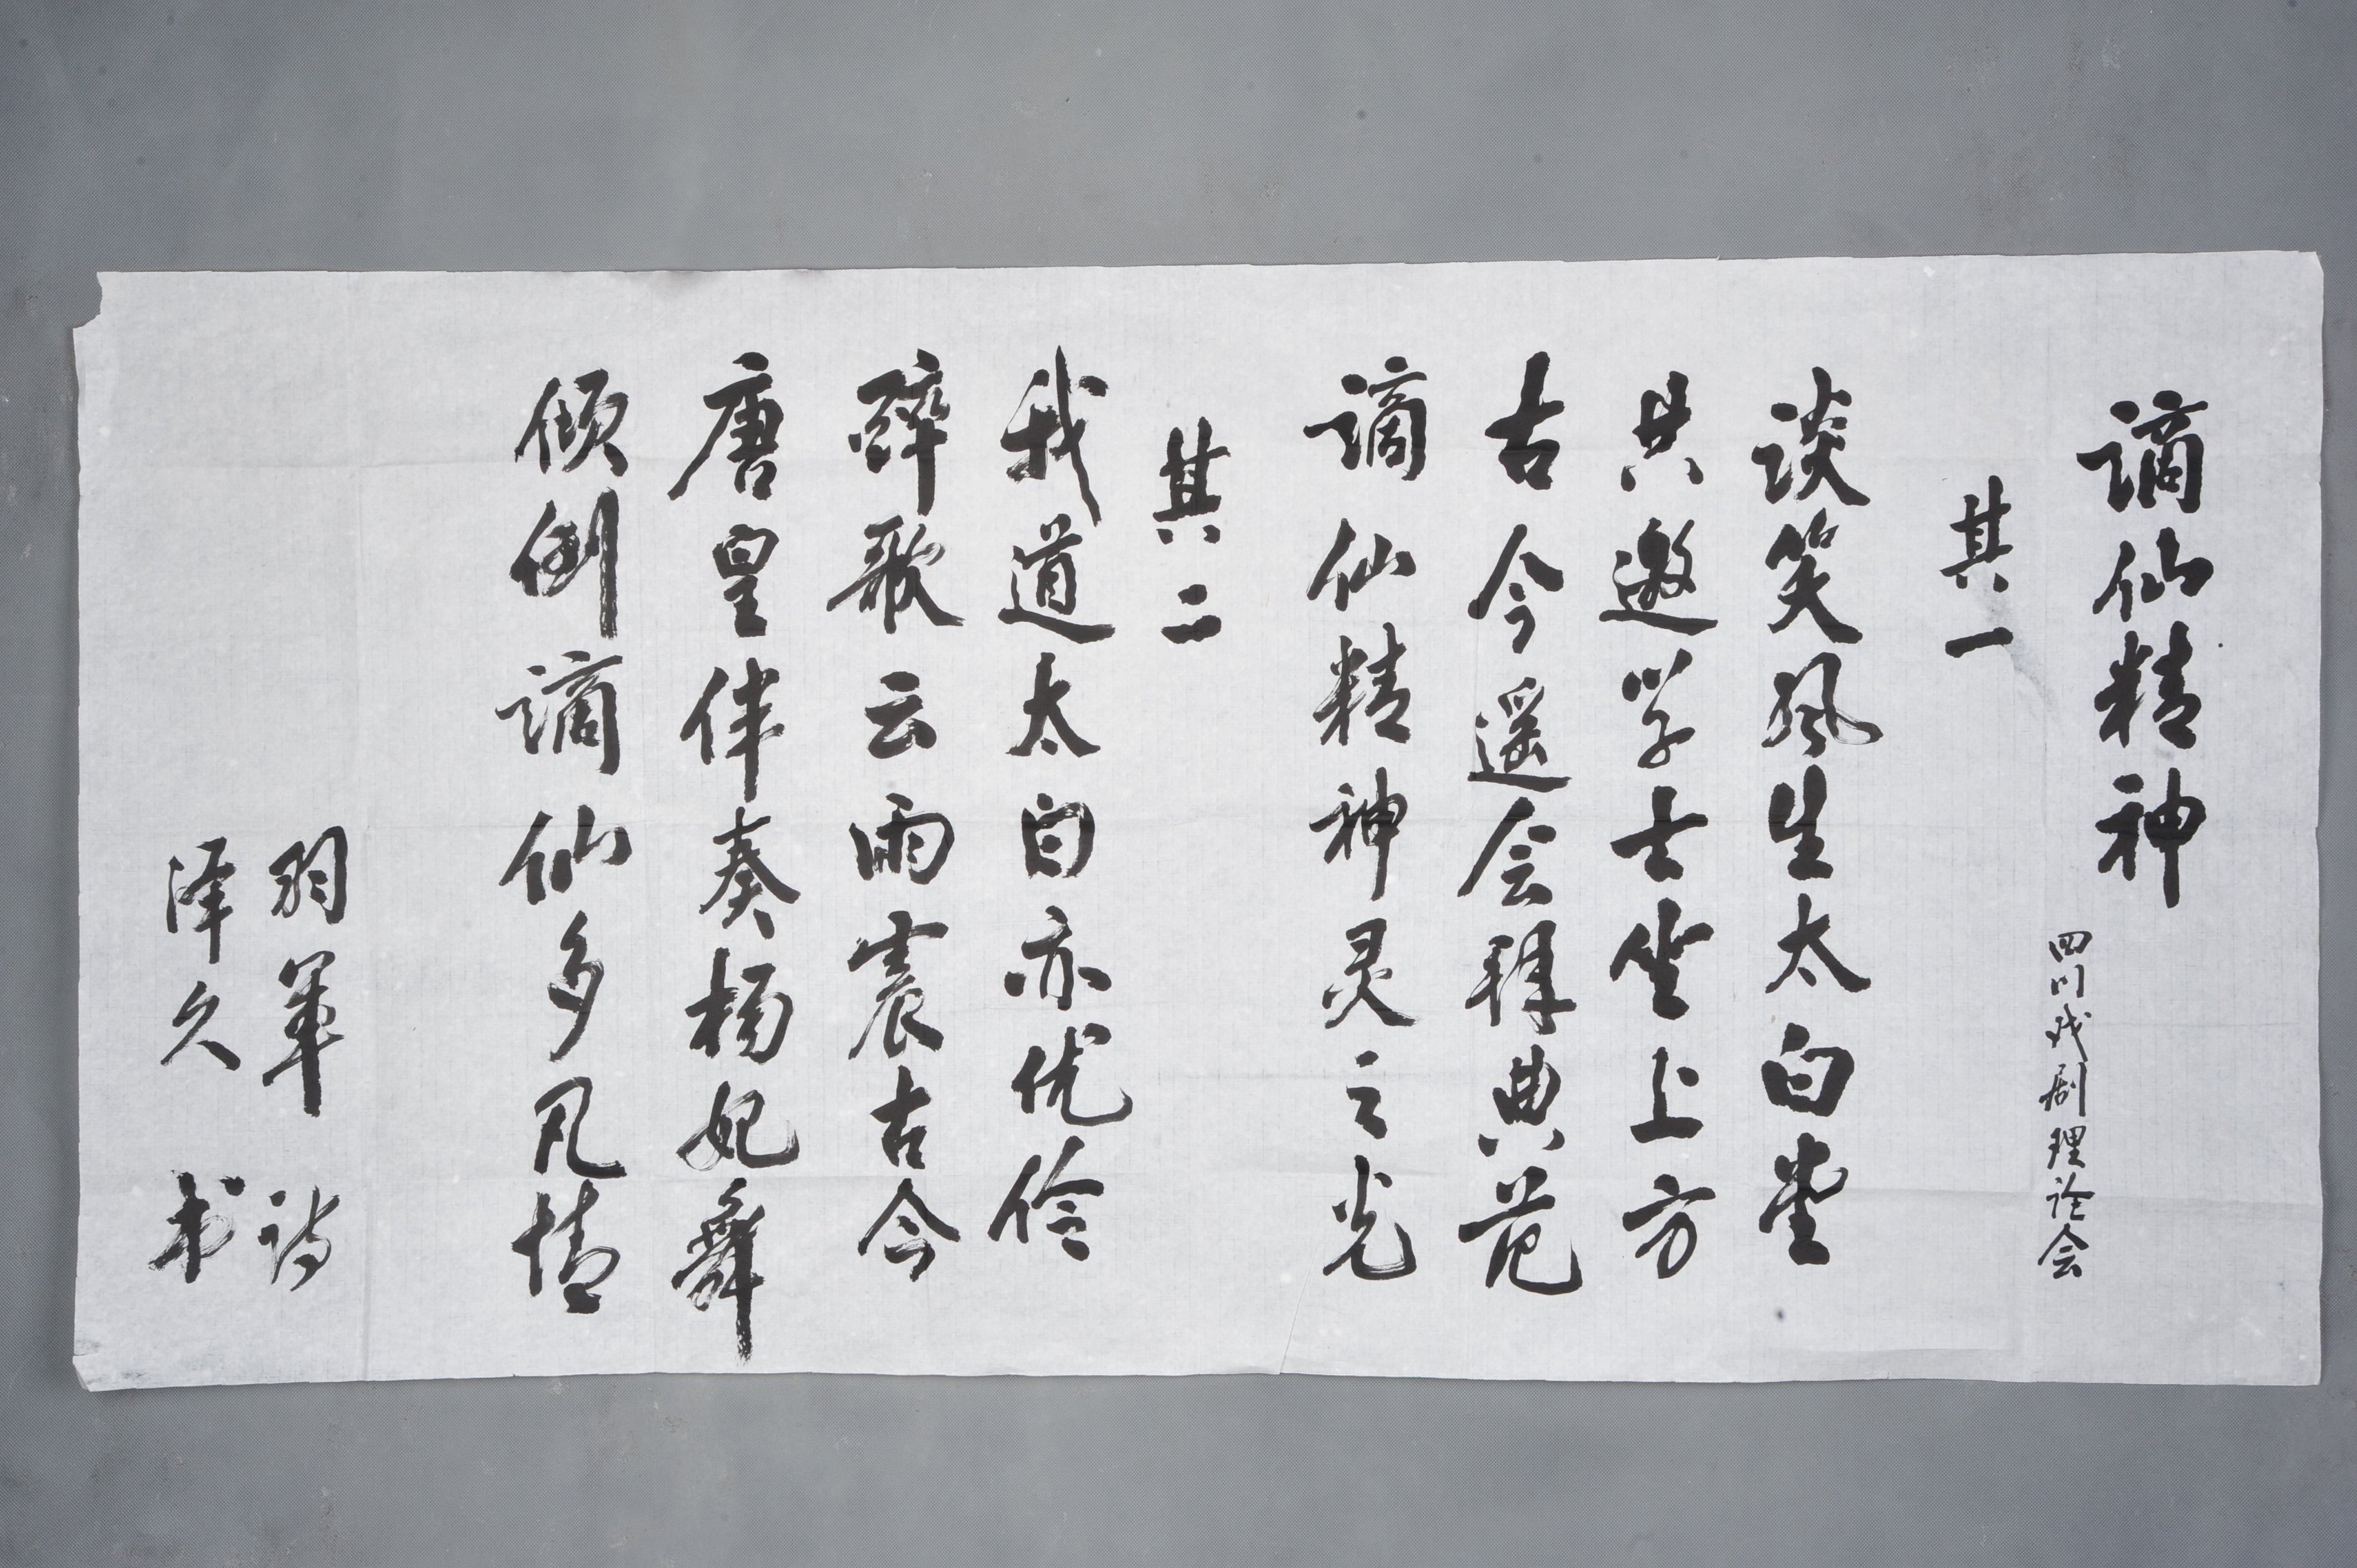 谪仙精神
四川戏剧理论会
其一
谈笑风生太白堂
共邀学士坐上方
古今遥会拜典范
谪仙精神灵之光
其二
我道太白亦优伶
醉歌云雨震古今
唐皇伴奏杨妃舞
倾倒谪仙多凡情
羽军 诗
泽久 书